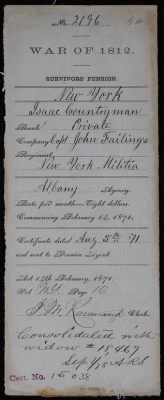 No. 2196
WAR OF 1812.
SURVIVORS' PENSION.
New York
Isaac Countryman
Rank: Private
Company: Capt. John Failing's
Regiment:
New York Militia
Albany Agency.
Rate per month—Eight dollars.
Commencing February 14, 1871.
Certificate dated Aug 5th '71
and sent to Pension Agent.
Act 14th February, 1871.
Vol. Page 10
Clerk.
Consolidated with
widow # 18,467
Cert. No. 15 038